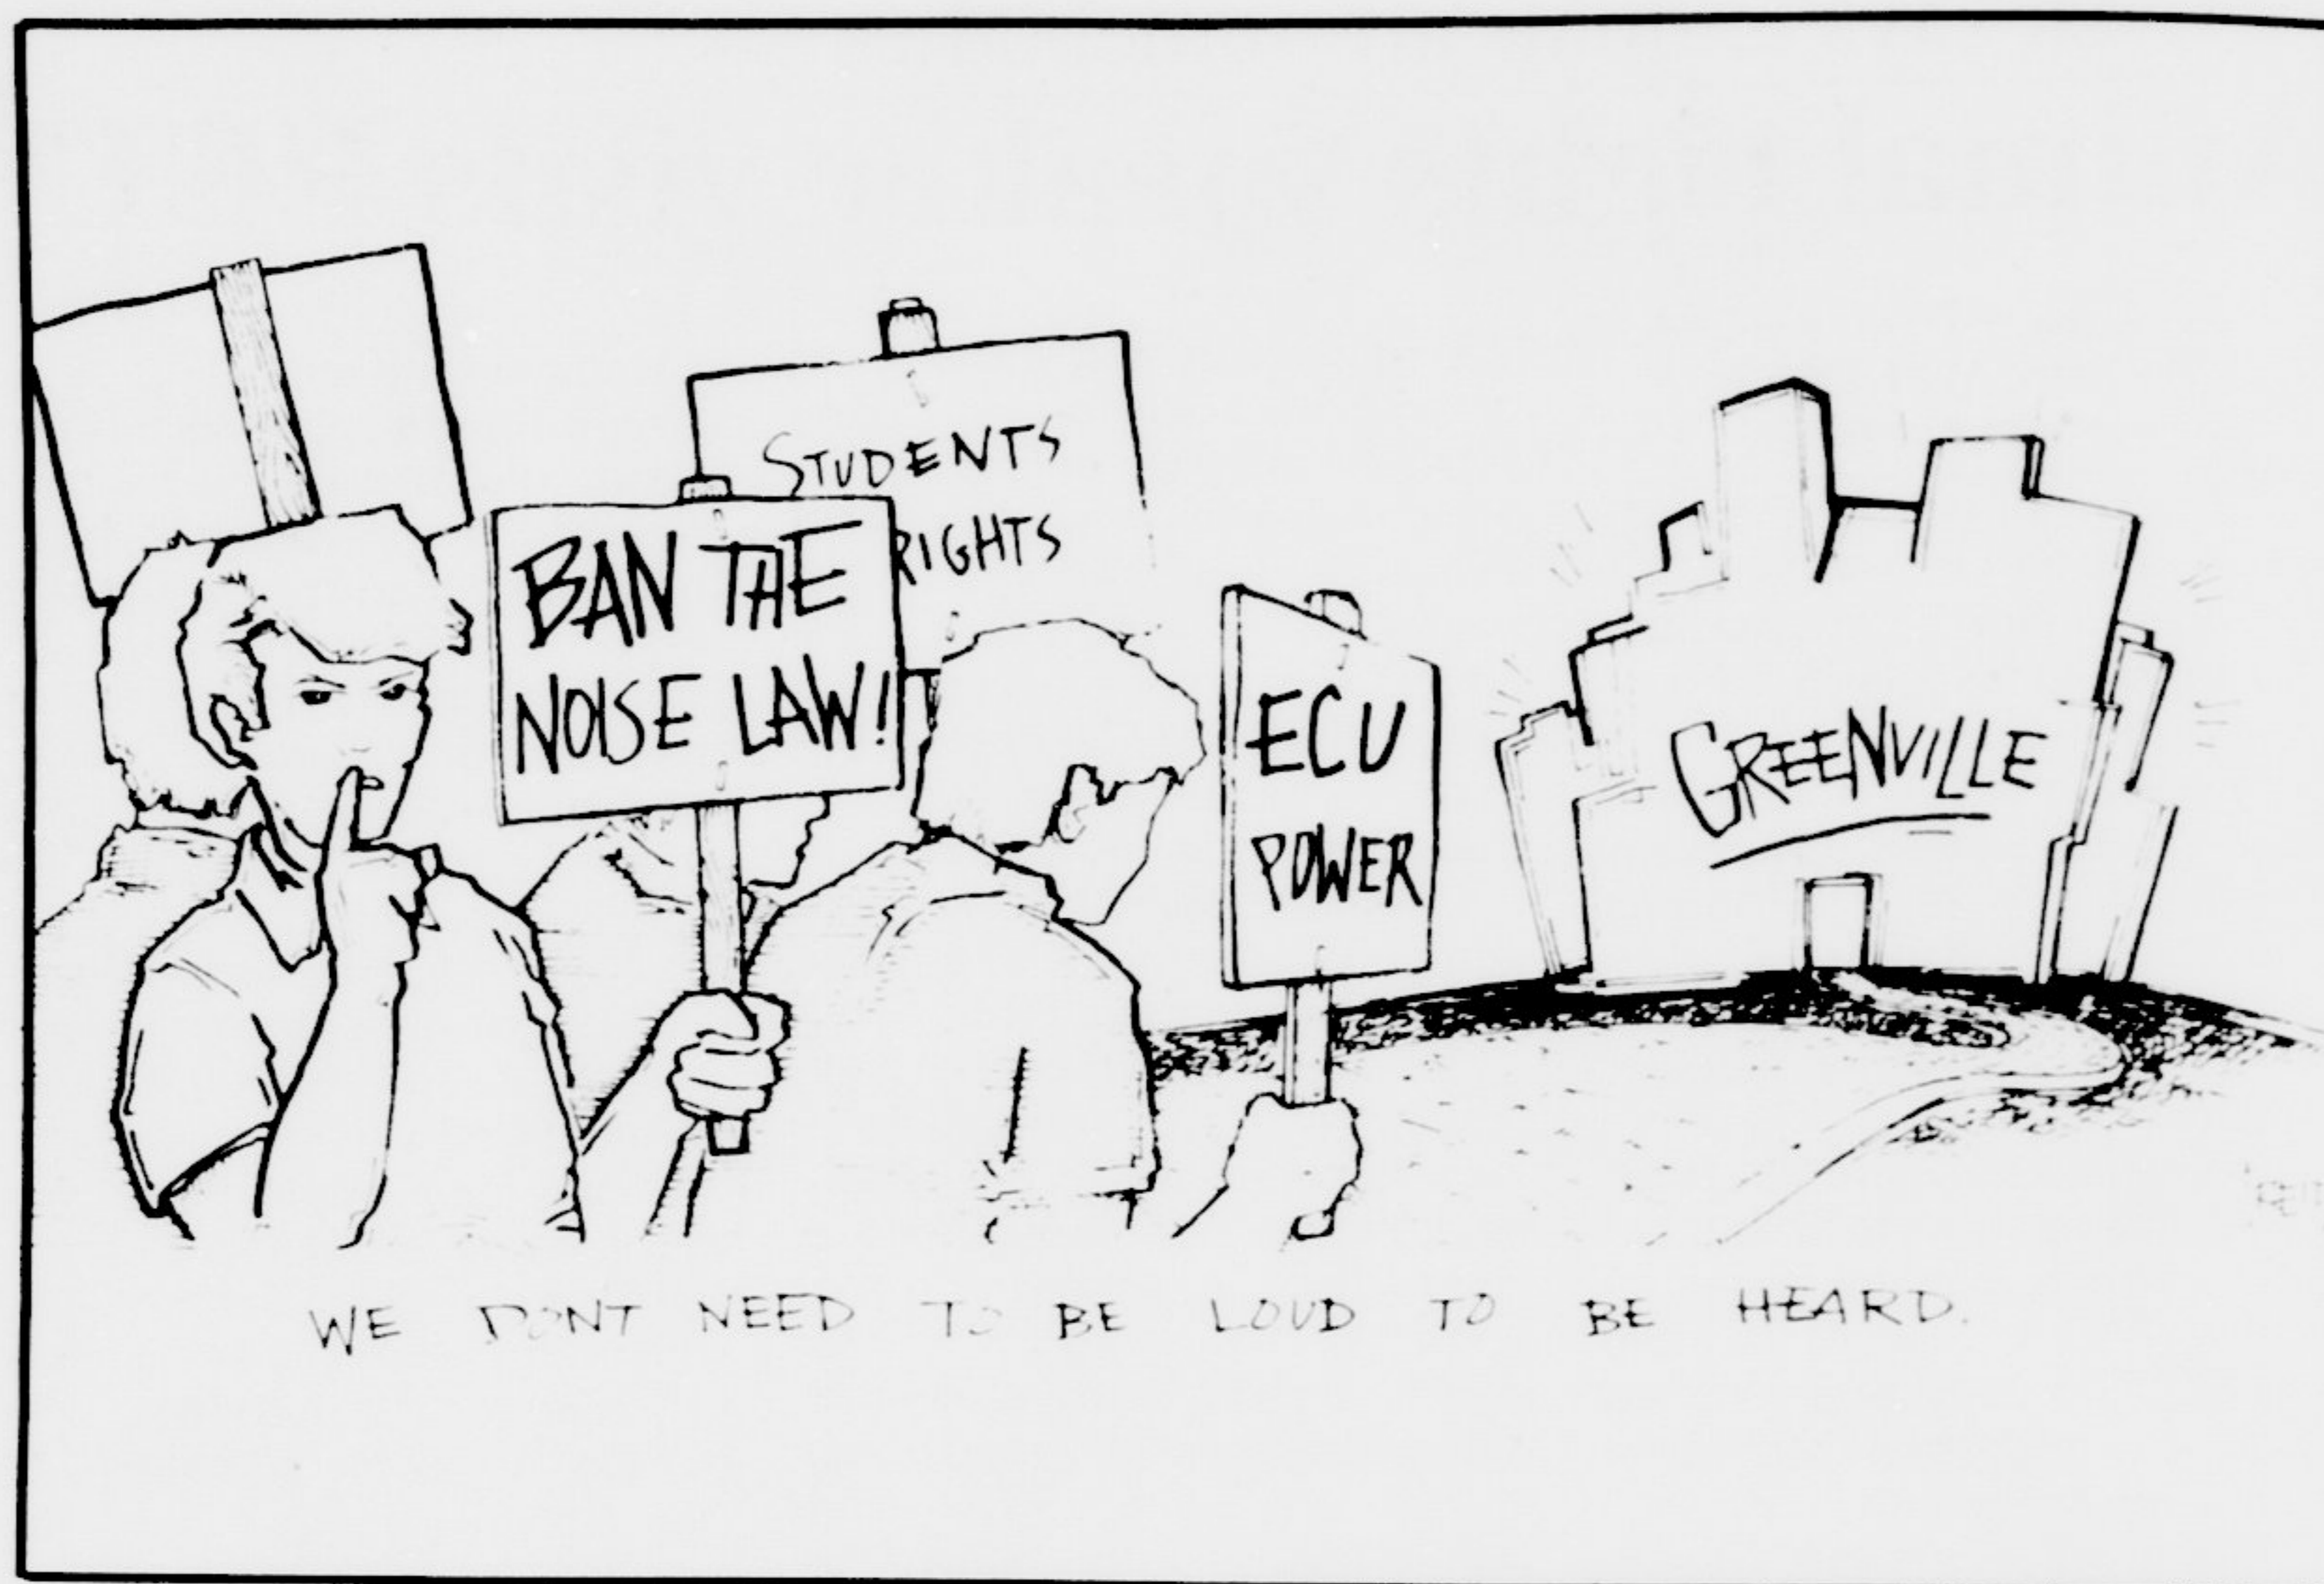 STUDENTS
RIGHTS
BAN THE
NOISE LAW!
ECU
POWER
GREENVILLE
WE DONT NEED TO BE LOUD TO BE HEARD.